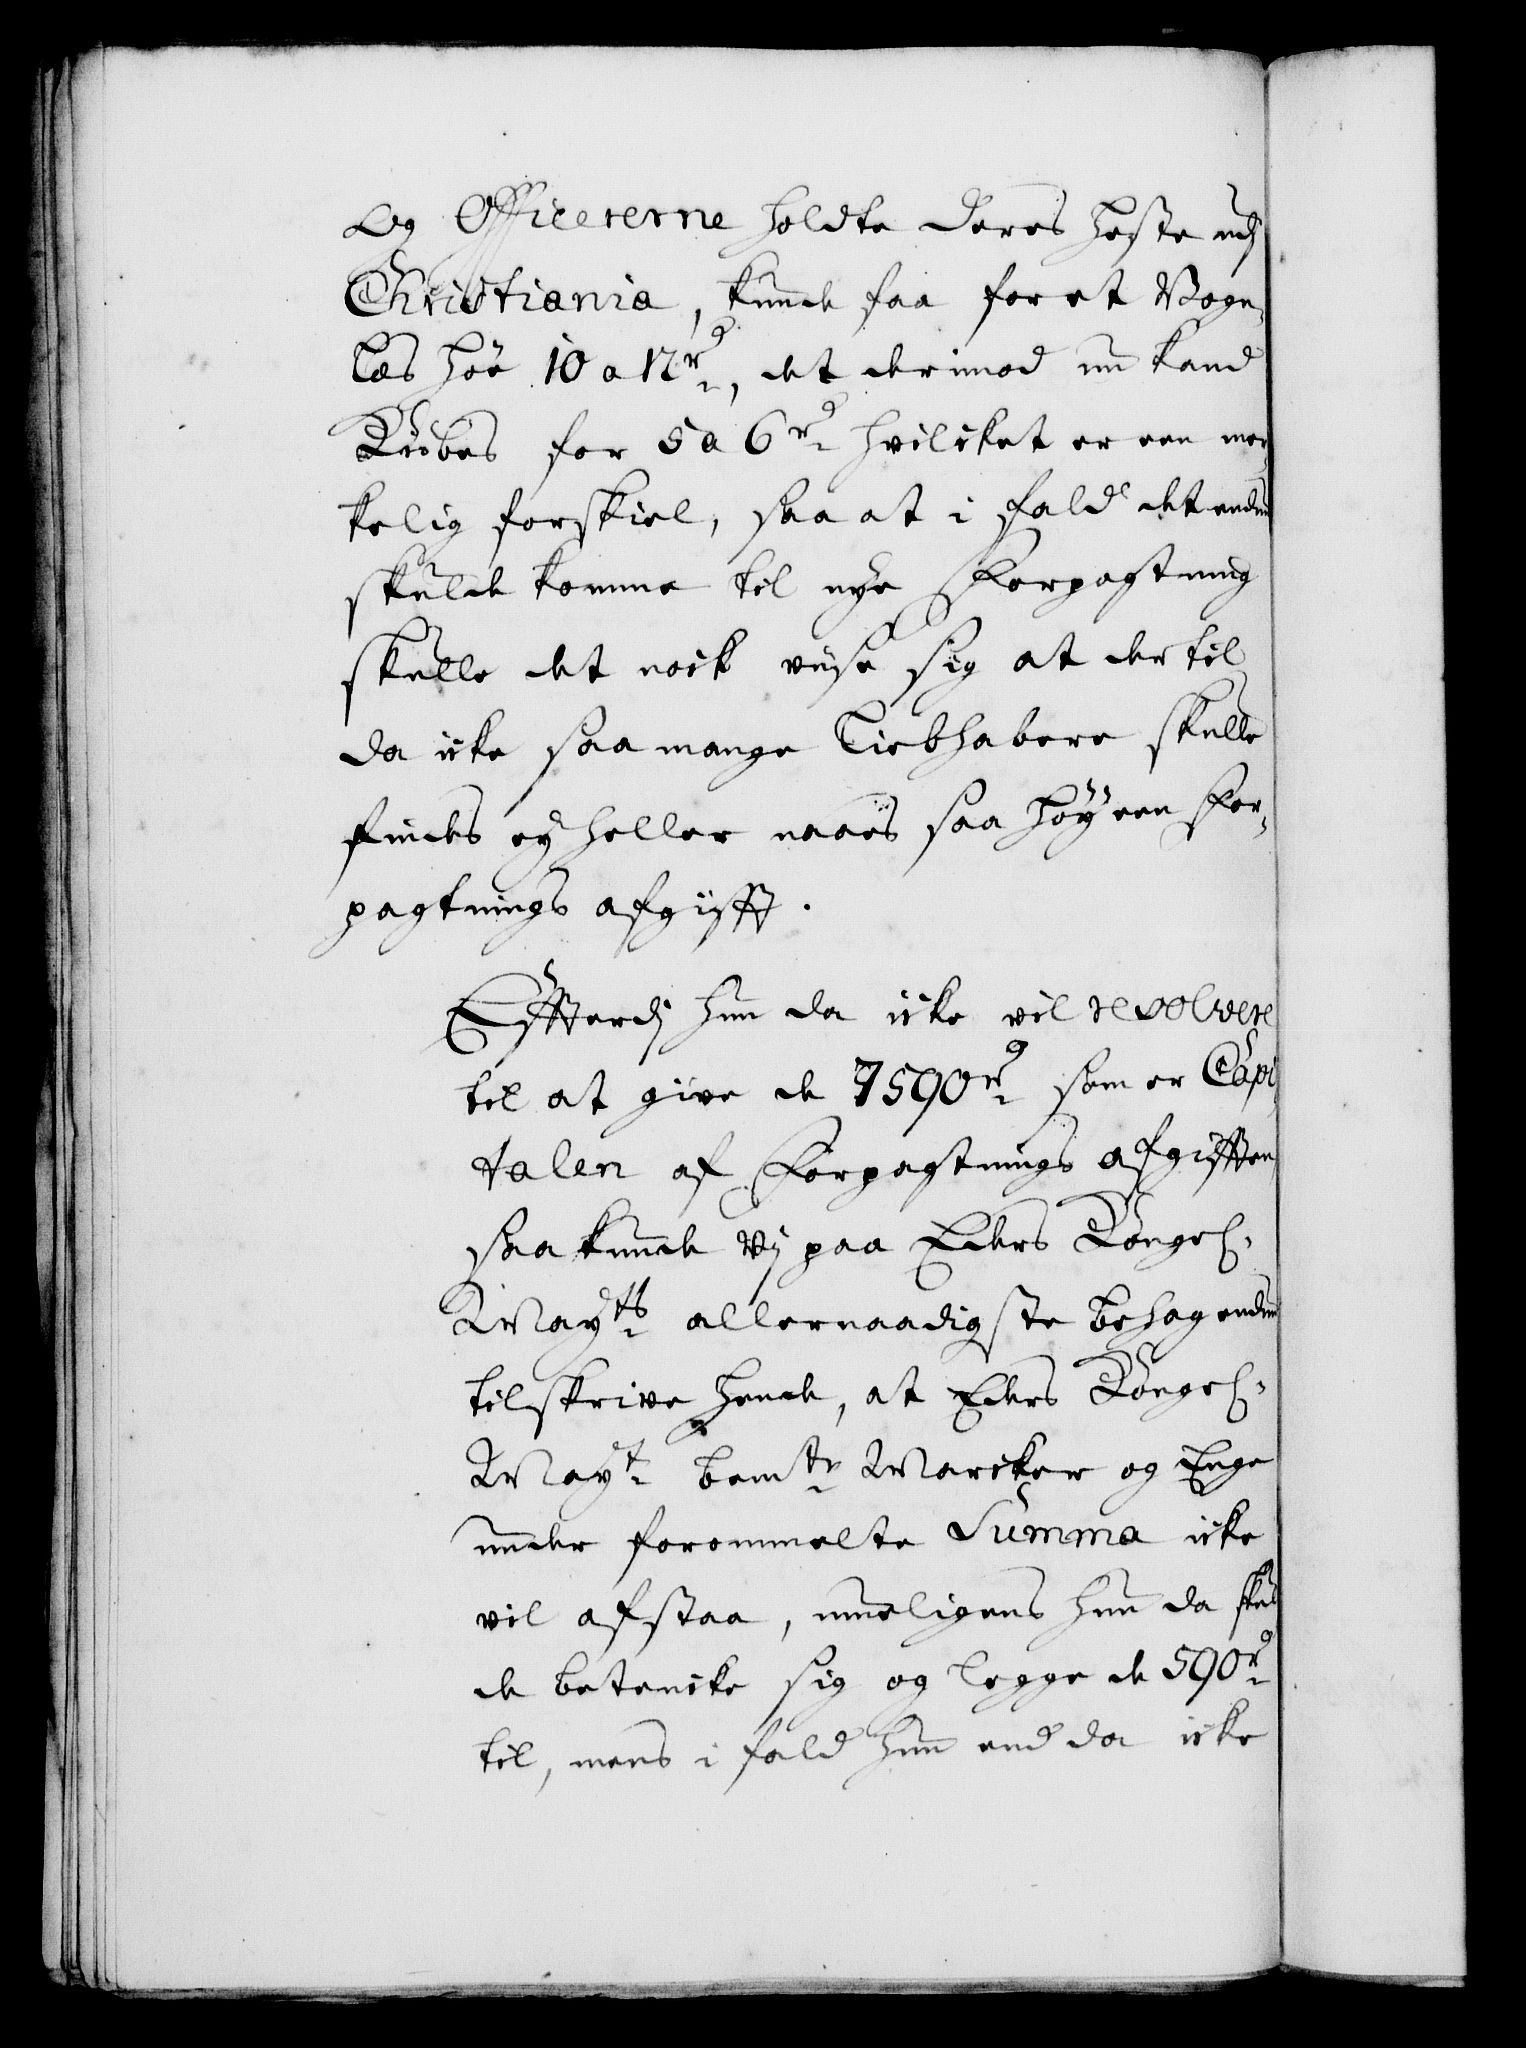 og Officererne holdte deres heste udj
Christiania, kunde faa for et Vogn-
læs høe 10 a 12 rd, det derimod nu kand
Kiøbes for 5 a 6 rd hvilcket er een mer-
kelig forskiel, saa at i fald det endnu
skulde komme til nye Forpagtning
skulle det nock viise sig at der til
da icke saa mange Liebhabere skulle
findes ey heller naaes saa høy een For-
pagtnings afgifft.
Effterdj hun da icke vil resolvere
til at give de 7590 rd som er Capi-
talen af Forpagtnings afgifften
saa kunde Vj paa Eders Kongel:
Mayts allernaadigste behag endnu
tilskrive hende, at Eders Kongel:
Mayt bemte Marcker og Enge
under forommelte Summa icke
vil afstaa, mueligens hun da skul-
de betencke sig og legge de 590 rd
til, mens i fald hun end da icke